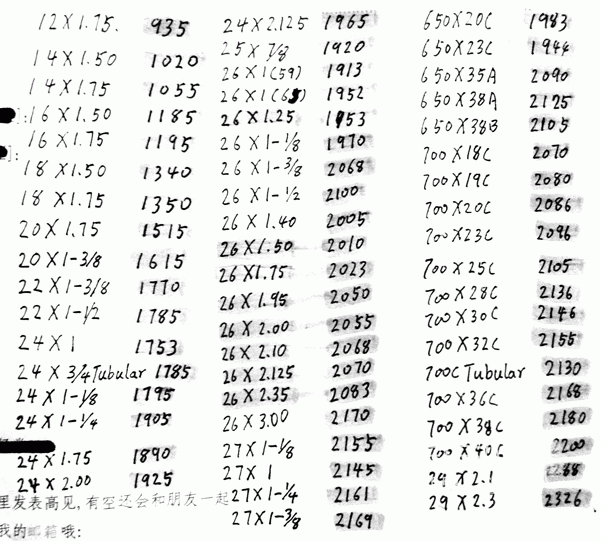 12X1.75. 935
14X1.50 1020
14X1.75 1055
16X1.50 1185
16X1.75 1195
18X1.50 1340
18X1.75 1350
20X1.75 1515
20X1-3/8 1615
22X1-3/8 1770
22X1-1/2 1785
24X1 1753
24X3/4Tubular 1785
24X1-1/8 1795
24X1-1/4 1905
24X1.75 1890
24X2.00 1925
里发表高见,有空还会和朋友一起
我的邮箱哦:
24X2.125 1965
25X7/8 1920
26X1(59) 1913
26X1(65) 1952
26X1.25 1953
26X1-1/8 1970
26X1-3/8 2068
26X1-1/2 2100
26X1.40 2005
26X1.50 2010
26X1.75 2023
26X1.95 2050
26X2.00 2055
26X2.10 2068
26X2.125 2070
26X2.35 2083
26X3.00 2170
27X1-1/8 2155
27X1 2145
27X1-1/4 2161
27X1-3/8 2169
650X20C 1983
650X23C 1944
650X35A 2090
650X38A 2125
650X38B 2105
700X18C 2070
700X19C 2080
700X20C 2086
700X23C 2096
700X25C 2105
700X28C 2136
700X30C 2146
700X32C 2155
700C Tubular 2130
700X36C 2168
700X38C 2180
700X40C 2200
29X2.1 2288
29X2.3 2326